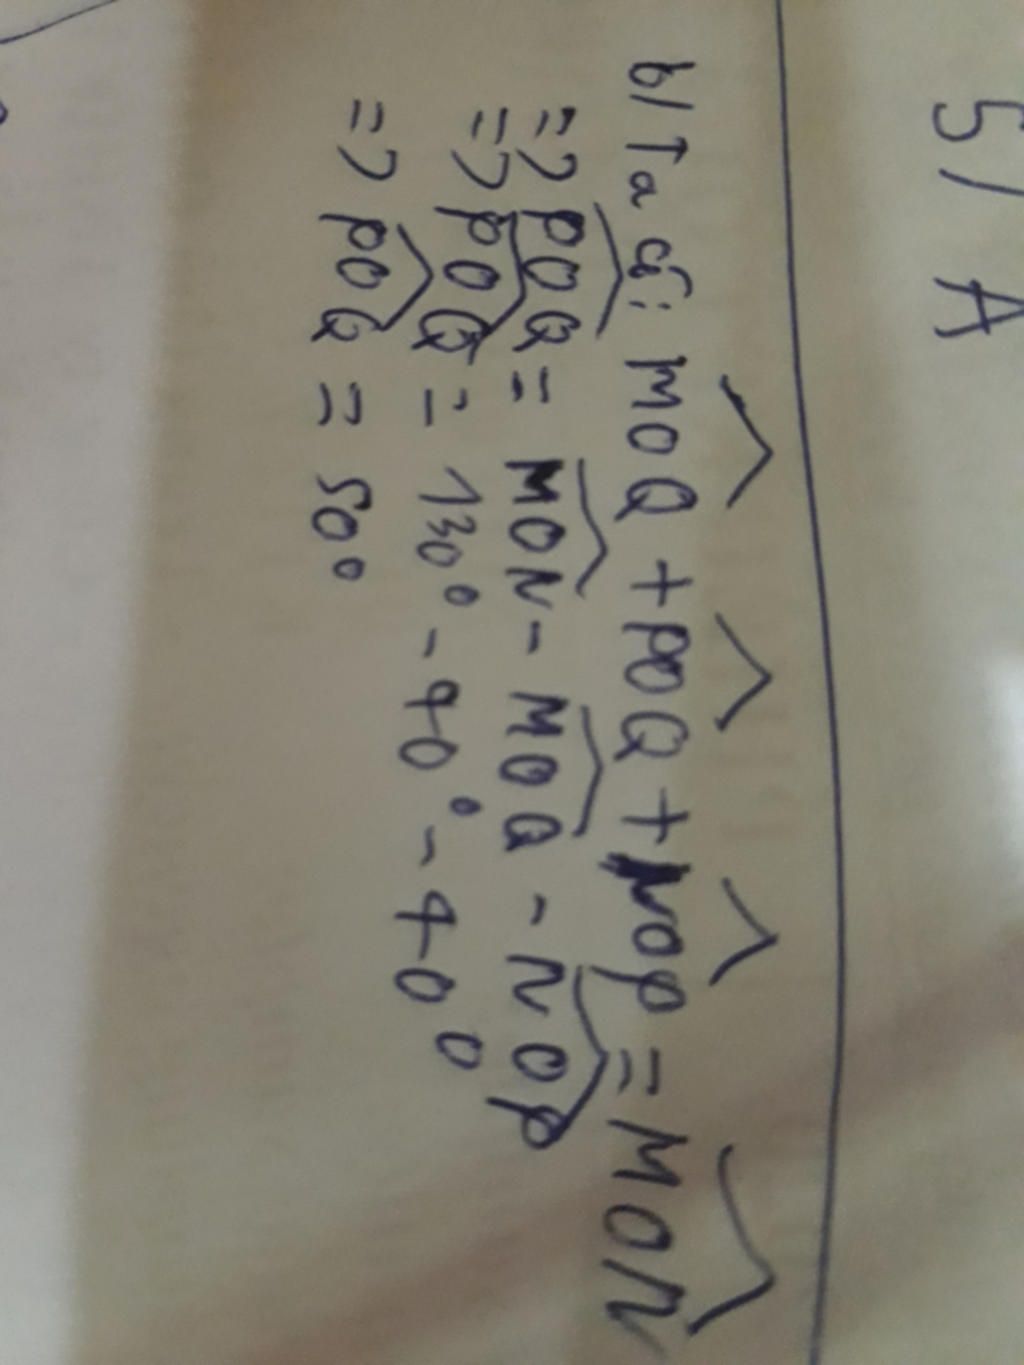 5/ A
b/ Ta có: MOQ + POQ + NOP = MON
=> POQ = MON - MOQ - NOP
=> POQ = 130° - 40° - 40°
=> POQ = 50°